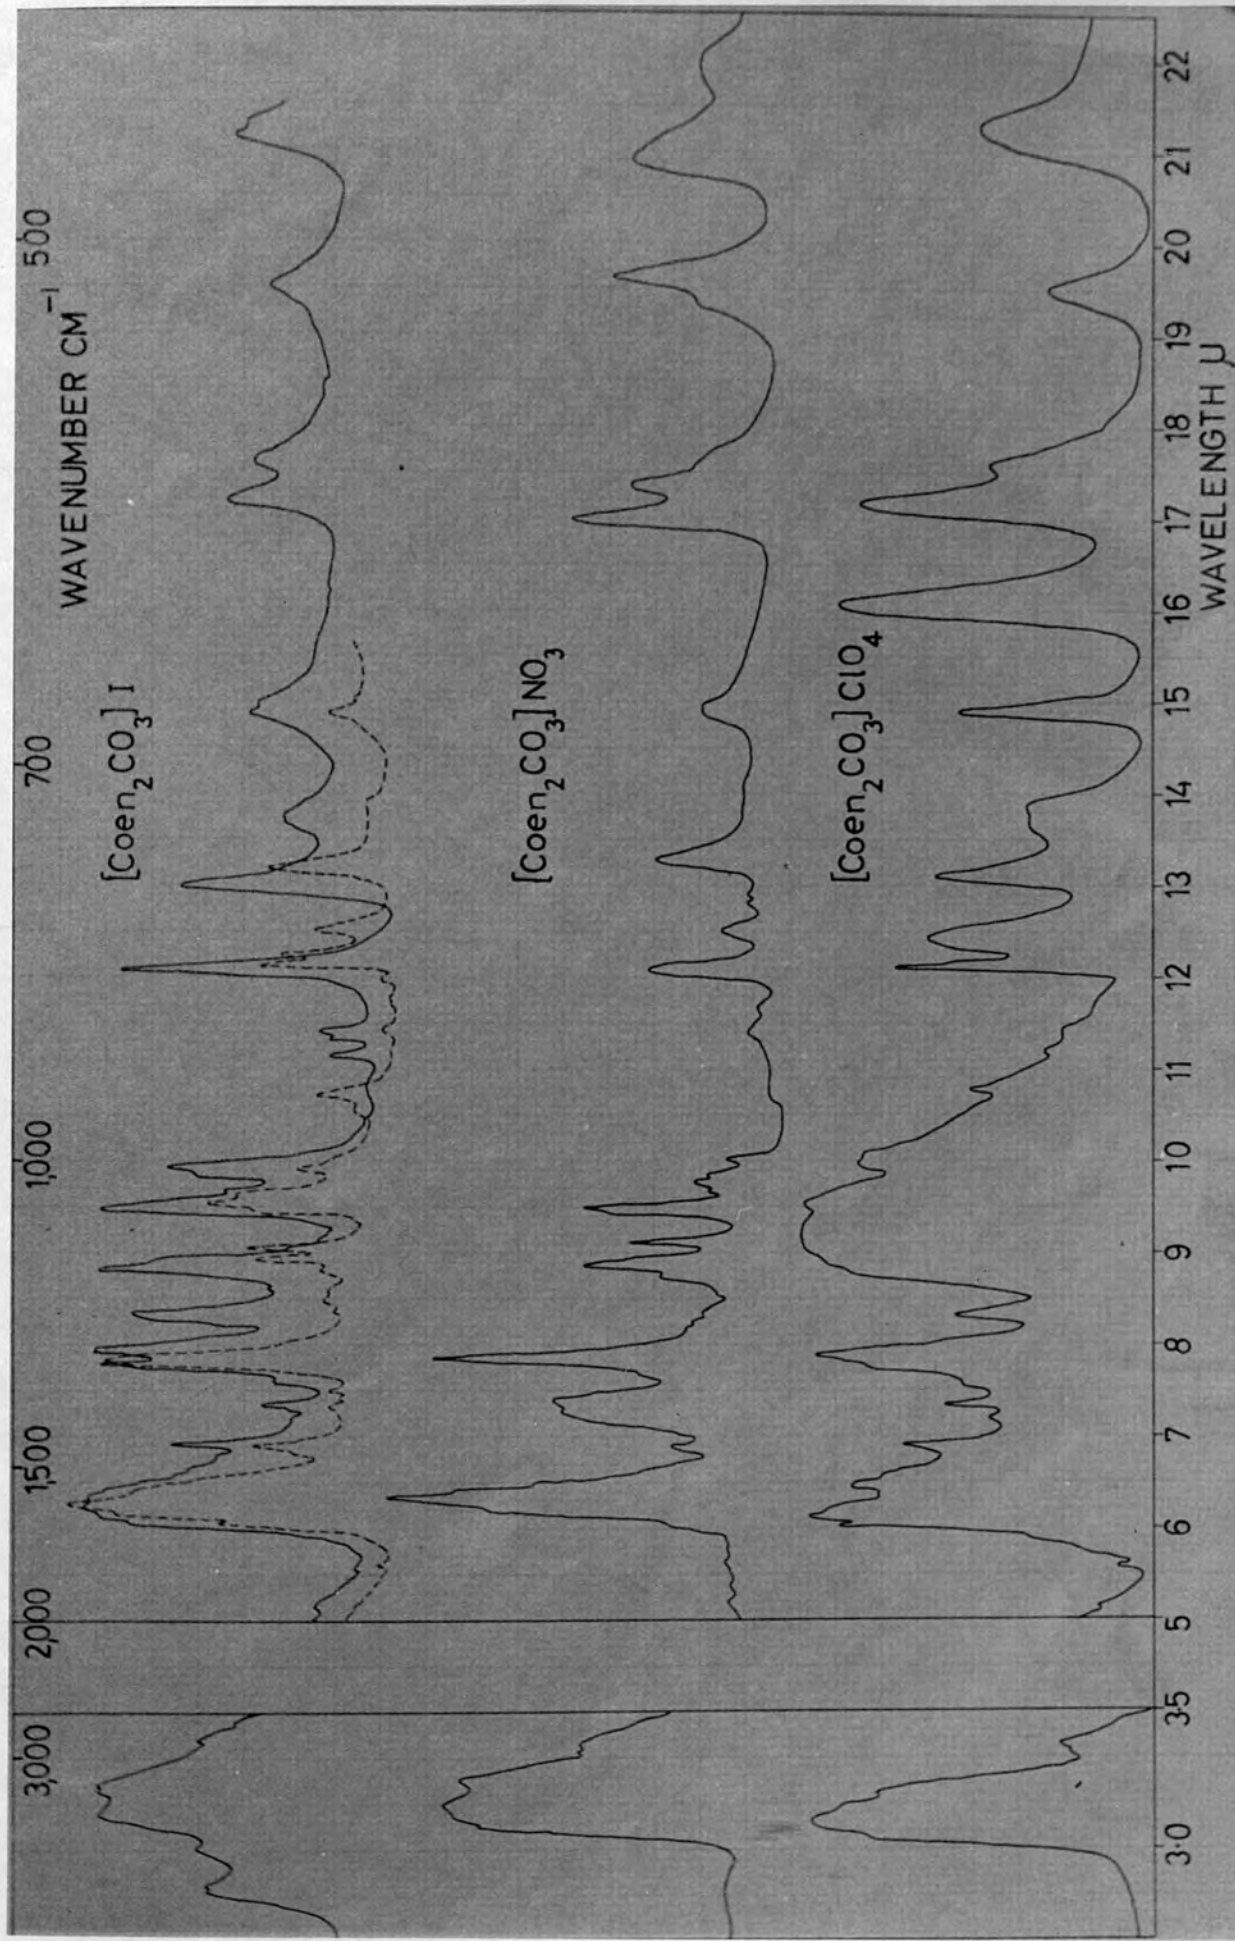 3,000 2,000 1,500 1,000 700 500
WAVENUMBER CM⁻¹
[Coen₂CO₃] I
[Coen₂CO₃] NO₃
[Coen₂CO₃] ClO₄
3·0 35 5 6 7 8 9 10 11 12 13 14 15 16 17 18 19 20 21 22
WAVELENGTH μ